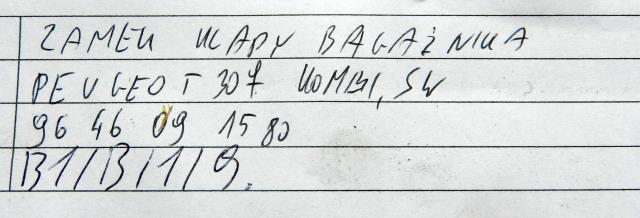 ZAMEK KLAPY BAGAŻNIKA
PEUGEOT 307 KOMBI, SW
96 46 09 15 80
B1/B/1/9.